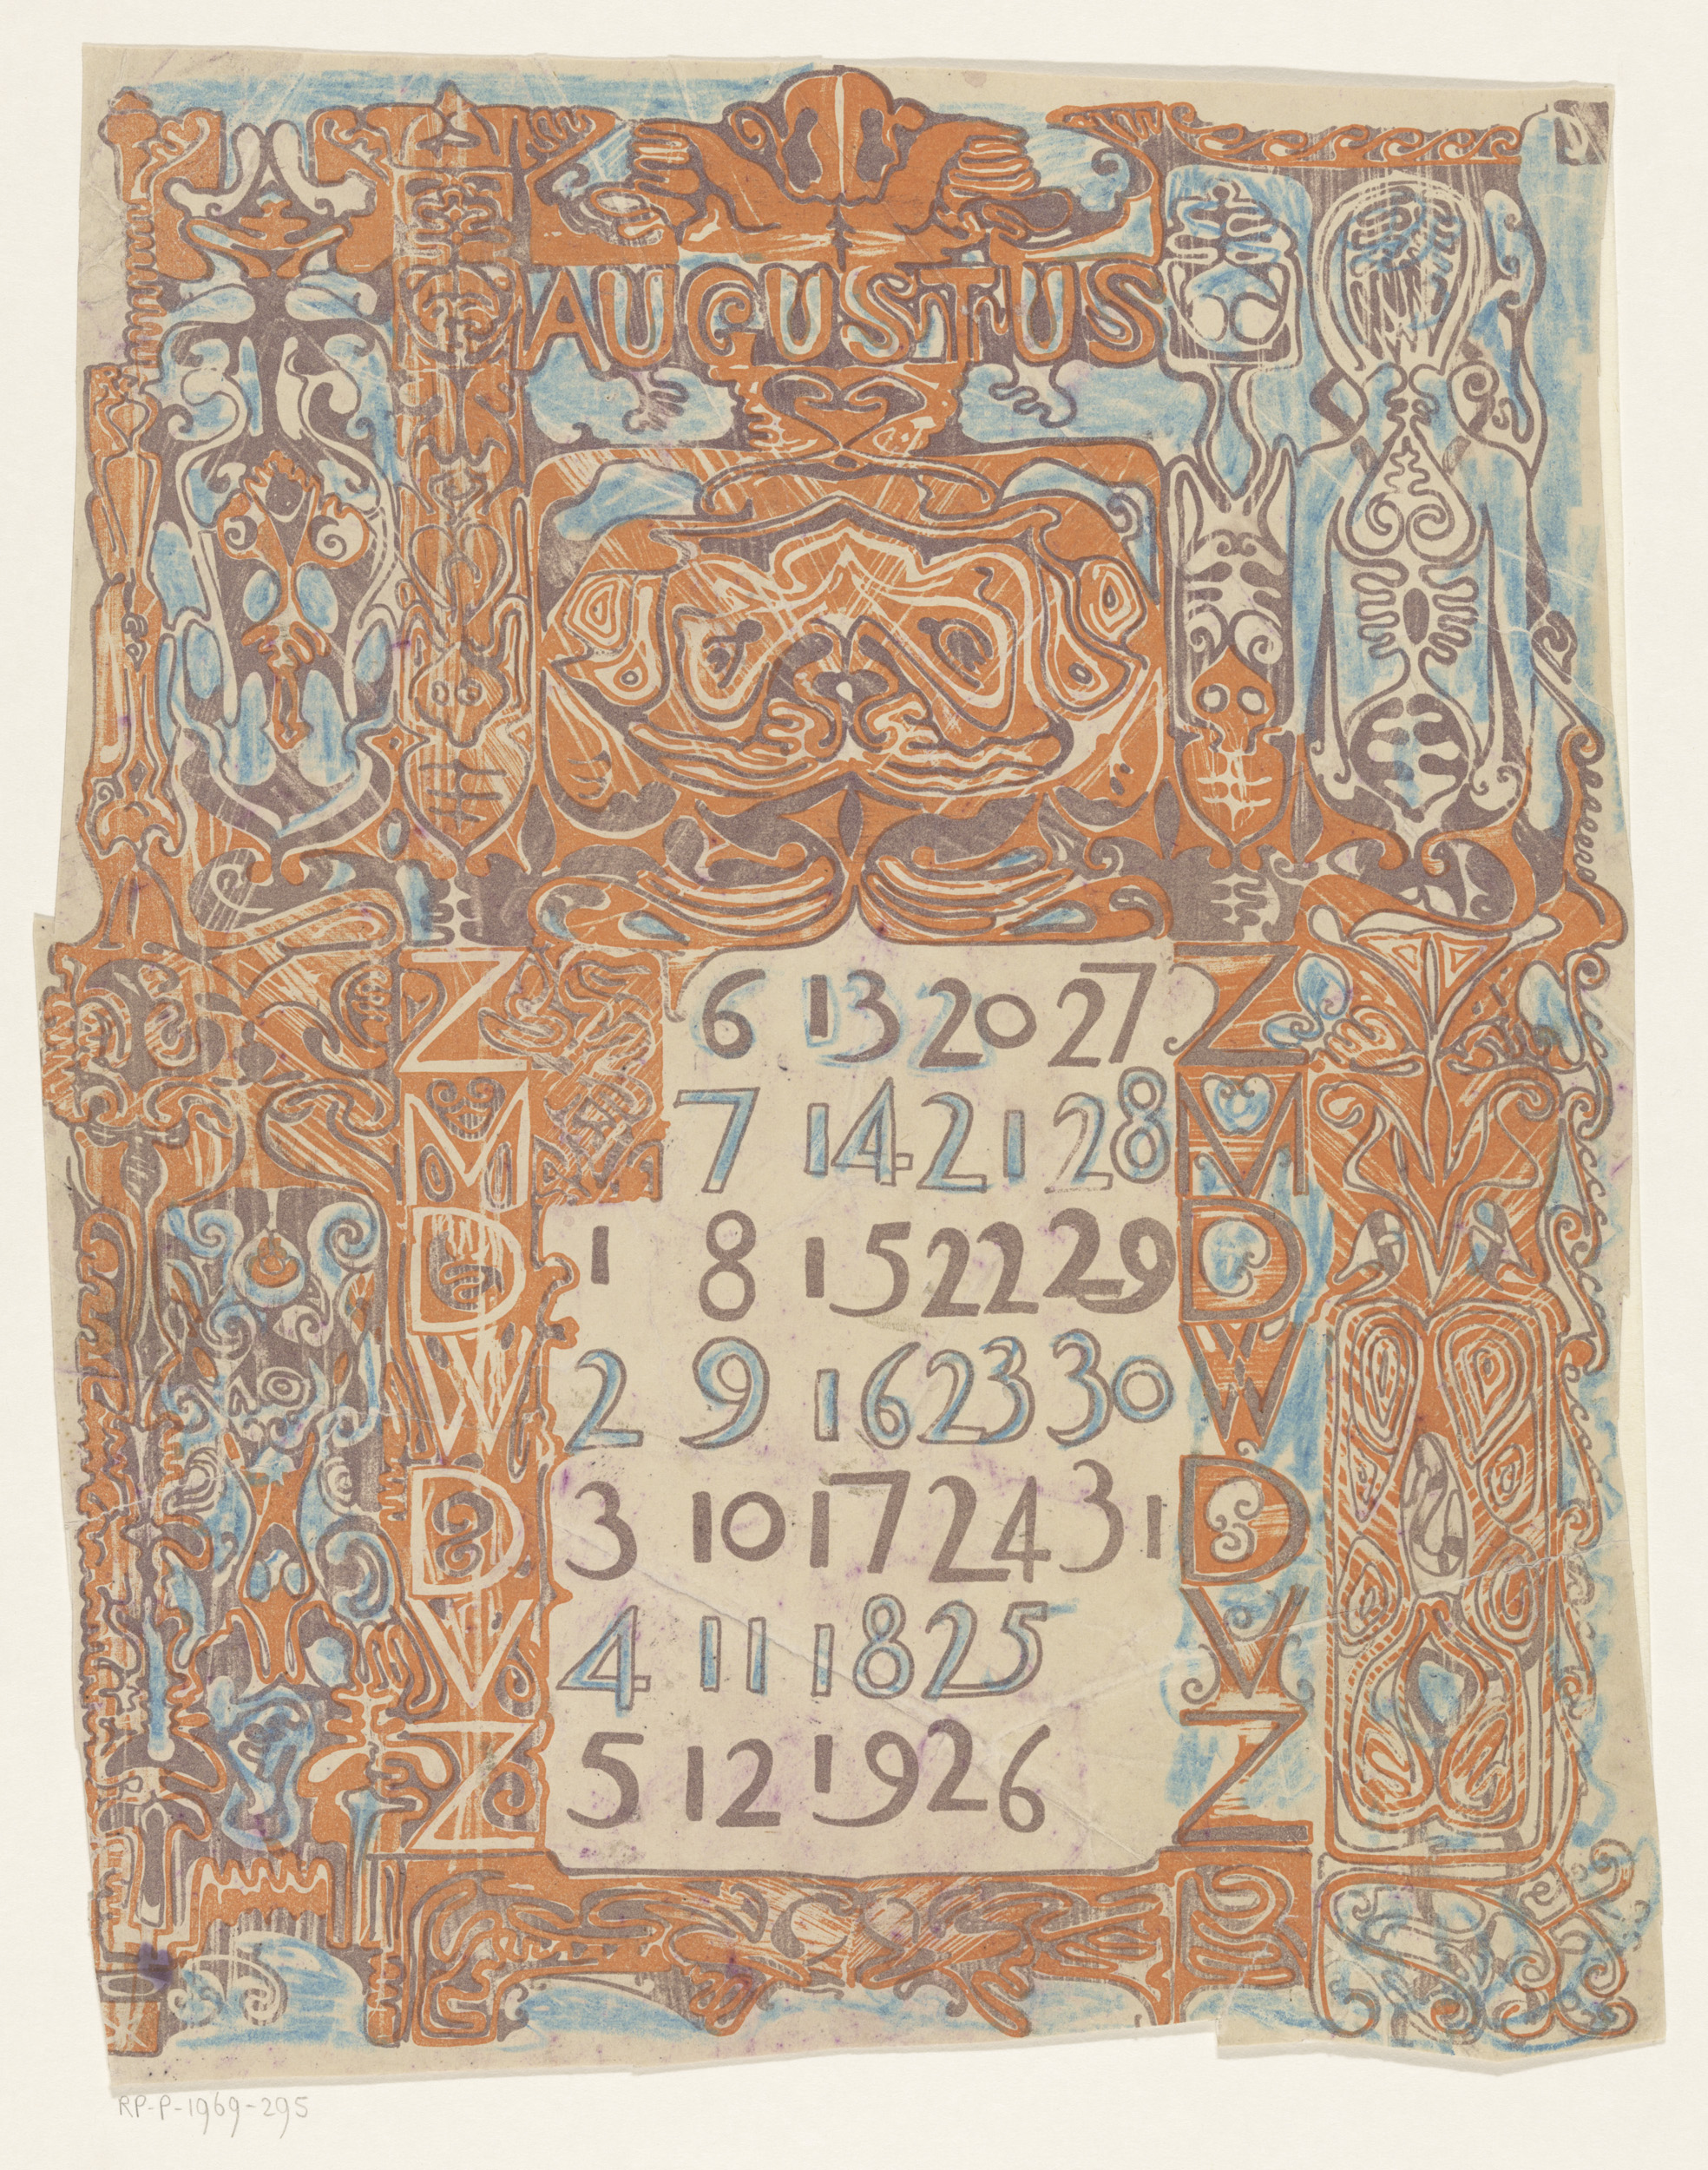 AUGUSTUS
Z 6 13 20 27 Z
M 7 14 21 28 M
D 1 8 15 22 29 D
W 2 9 16 23 30 W
D 3 10 17 24 31 D
V 4 11 18 25 V
Z 5 12 19 26 Z
RP-P-1969-295